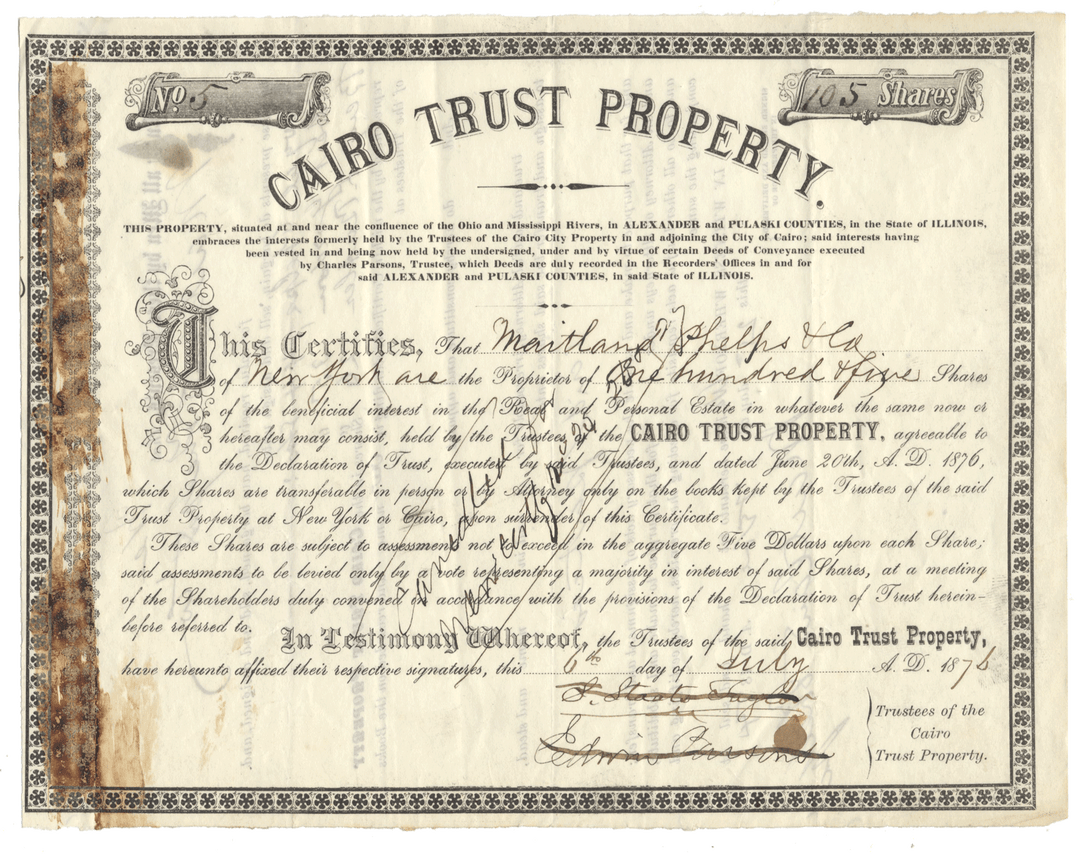 No 5
105 Shares
CAIRO TRUST PROPERTY.
THIS PROPERTY, situated at and near the confluence of the Ohio and Mississippi Rivers, in ALEXANDER and PULASKI COUNTIES, in the State of ILLINOIS,
embraces the interests formerly held by the Trustees of the Cairo City Property in and adjoining the City of Cairo; said interests having
been vested in and being now held by the undersigned, under and by virtue of certain Deeds of Conveyance executed
by Charles Parsons, Trustee, which Deeds are duly recorded in the Recorders' Offices in and for
said ALEXANDER and PULASKI COUNTIES, in said State of ILLINOIS.
This Certifies, That Maitland Phelps & Co.
of New York are the Proprietor of One hundred & five Shares
of the beneficial interest in the Real and Personal Estate in whatever the same now or
hereafter may consist, held by the Trustees of the CAIRO TRUST PROPERTY, agreeable to
the Declaration of Trust, executed by said Trustees, and dated June 20th, A. D. 1876,
which Shares are transferable in person or by Attorney only on the books kept by the Trustees of the said
Trust Property at New York or Cairo, upon surrender of this Certificate.
These Shares are subject to assessment not to exceed in the aggregate Five Dollars upon each Share;
said assessments to be levied only by a vote representing a majority in interest of said Shares, at a meeting
of the Shareholders duly convened in accordance with the provisions of the Declaration of Trust herein-
before referred to.
In Testimony Whereof, the Trustees of the said Cairo Trust Property,
have hereunto affixed their respective signatures, this 6th day of July A. D. 1876
S. Staats Taylor
Edwin Parsons
Trustees of the
Cairo
Trust Property.
Cancelled